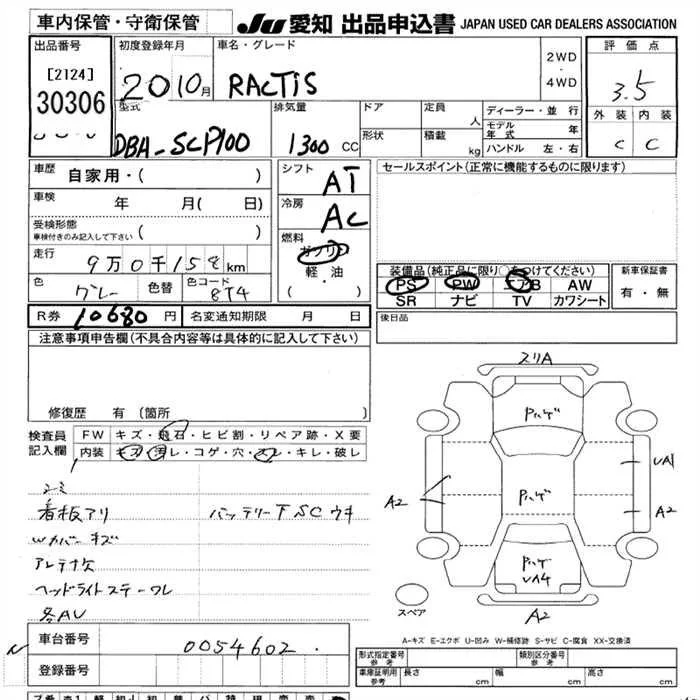 車内保管・守衛保管
JU 愛知 出品申込書 JAPAN USED CAR DEALERS ASSOCIATION
出品番号
[2124]
30306
初度登録年月
20 10月
車名・グレード
RACTIS
2WD
4WD
評価点
3.5
外装 内装
C C
型式
DBA-SCP100
排気量
1300 CC
ドア
形状
定員 人
積載 kg
ディーラー・並行
モデル年式 年
ハンドル 左・右
車歴 自家用・( )
車検 年 月( 日)
受検形態
車検付きのみ記入して下さい ( )
走行
9万0千158km
色 グレー 色替 色コード 8T4
シフト AT
冷房 AC
燃料
ガソリン
軽・油
( ・ )
セールスポイント(正常に機能するものに限ります)
装備品(純正品に限り○をつけてください)
PS PW エアB AW
SR ナビ TV カワシート
新車保証書
有・無
後日品
R券 10680円 名変通知期限 月 日
注意事項申告欄(不具合内容等は具体的に記入して下さい)
修復歴 有(箇所
検査員
記入欄
FW キズ・飛石・ヒビ割・リペア跡・X要
内装 キズ・汚レ・コゲ・穴・スレ・キレ・破レ
看板アリ バッテリー下SCウキ
Wカバーキズ
アンテナ欠
ヘッドライトステーワレ
各AU
スリA
Pハゲ
UA1
A2
Pハゲ
A2
Pハゲ
UA4
A2
スペア
A-キズ E-エクボ U-凹み W-補修跡 S-サビ C-腐食 XX-交換済
車台番号 0054602
登録番号
形式指定番号 参考
類別区分番号 参考
車庫証明用 参考 長さ cm 幅 cm 高さ cm